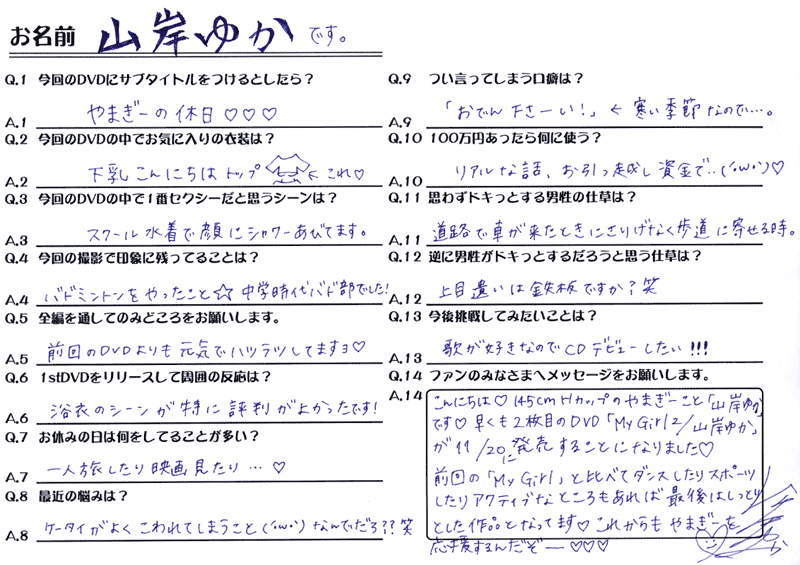 お名前 山岸ゆか です。
Q.1 今回のDVDにサブタイトルをつけるとしたら？
A.1 やまぎーの休日♡♡♡
Q.2 今回のDVDの中でお気に入りの衣装は？
A.2 下乳こんにちはトップ ← これ♡
Q.3 今回のDVDの中で1番セクシーだと思うシーンは？
A.3 スクール水着で顔にシャワーあびてます。
Q.4 今回の撮影で印象に残ってることは？
A.4 バドミントンをやったこと☆中学時代バド部でした!
Q.5 全編を通してのみどころをお願いします。
A.5 前回のDVDよりも元気でハツラツしてますヨ♡
Q.6 1stDVDをリリースして周囲の反応は？
A.6 浴衣のシーンが特に評判がよかったです!
Q.7 お休みの日は何をしてることが多い？
A.7 一人旅したり映画見たり…♡
Q.8 最近の悩みは？
A.8 ケータイがよくこわれてしまうこと(´・ω・`)なんでだろ??笑
Q.9 つい言ってしまう口癖は？
A.9 「おでん下さーい!」← 寒い季節なので…。
Q.10 100万円あったら何に使う？
A.10 リアルな話、お引っ越し資金で..(´・ω・`)♡
Q.11 思わずドキっとする男性の仕草は？
A.11 道路で車が来たときにさりげなく歩道に寄せる時。
Q.12 逆に男性がドキっとするだろうと思う仕草は？
A.12 上目遣いは鉄板ですか？笑
Q.13 今後挑戦してみたいことは？
A.13 歌が好きなのでCDデビューしたい!!!
Q.14 ファンのみなさまへメッセージをお願いします。
A.14 こんにちは♡145cmHカップのやまぎーこと「山岸ゆか」
です♡早くも2枚目のDVD「My Girl 2/山岸ゆか」
が11/20に発売することになりました♡
前回の「My Girl」と比べてダンスしたりスポーツ
したりアクティブなところもあれば最後はしっとり
とした作品となってます♡これからもやまぎーを
応援するんだぞー♡♡♡